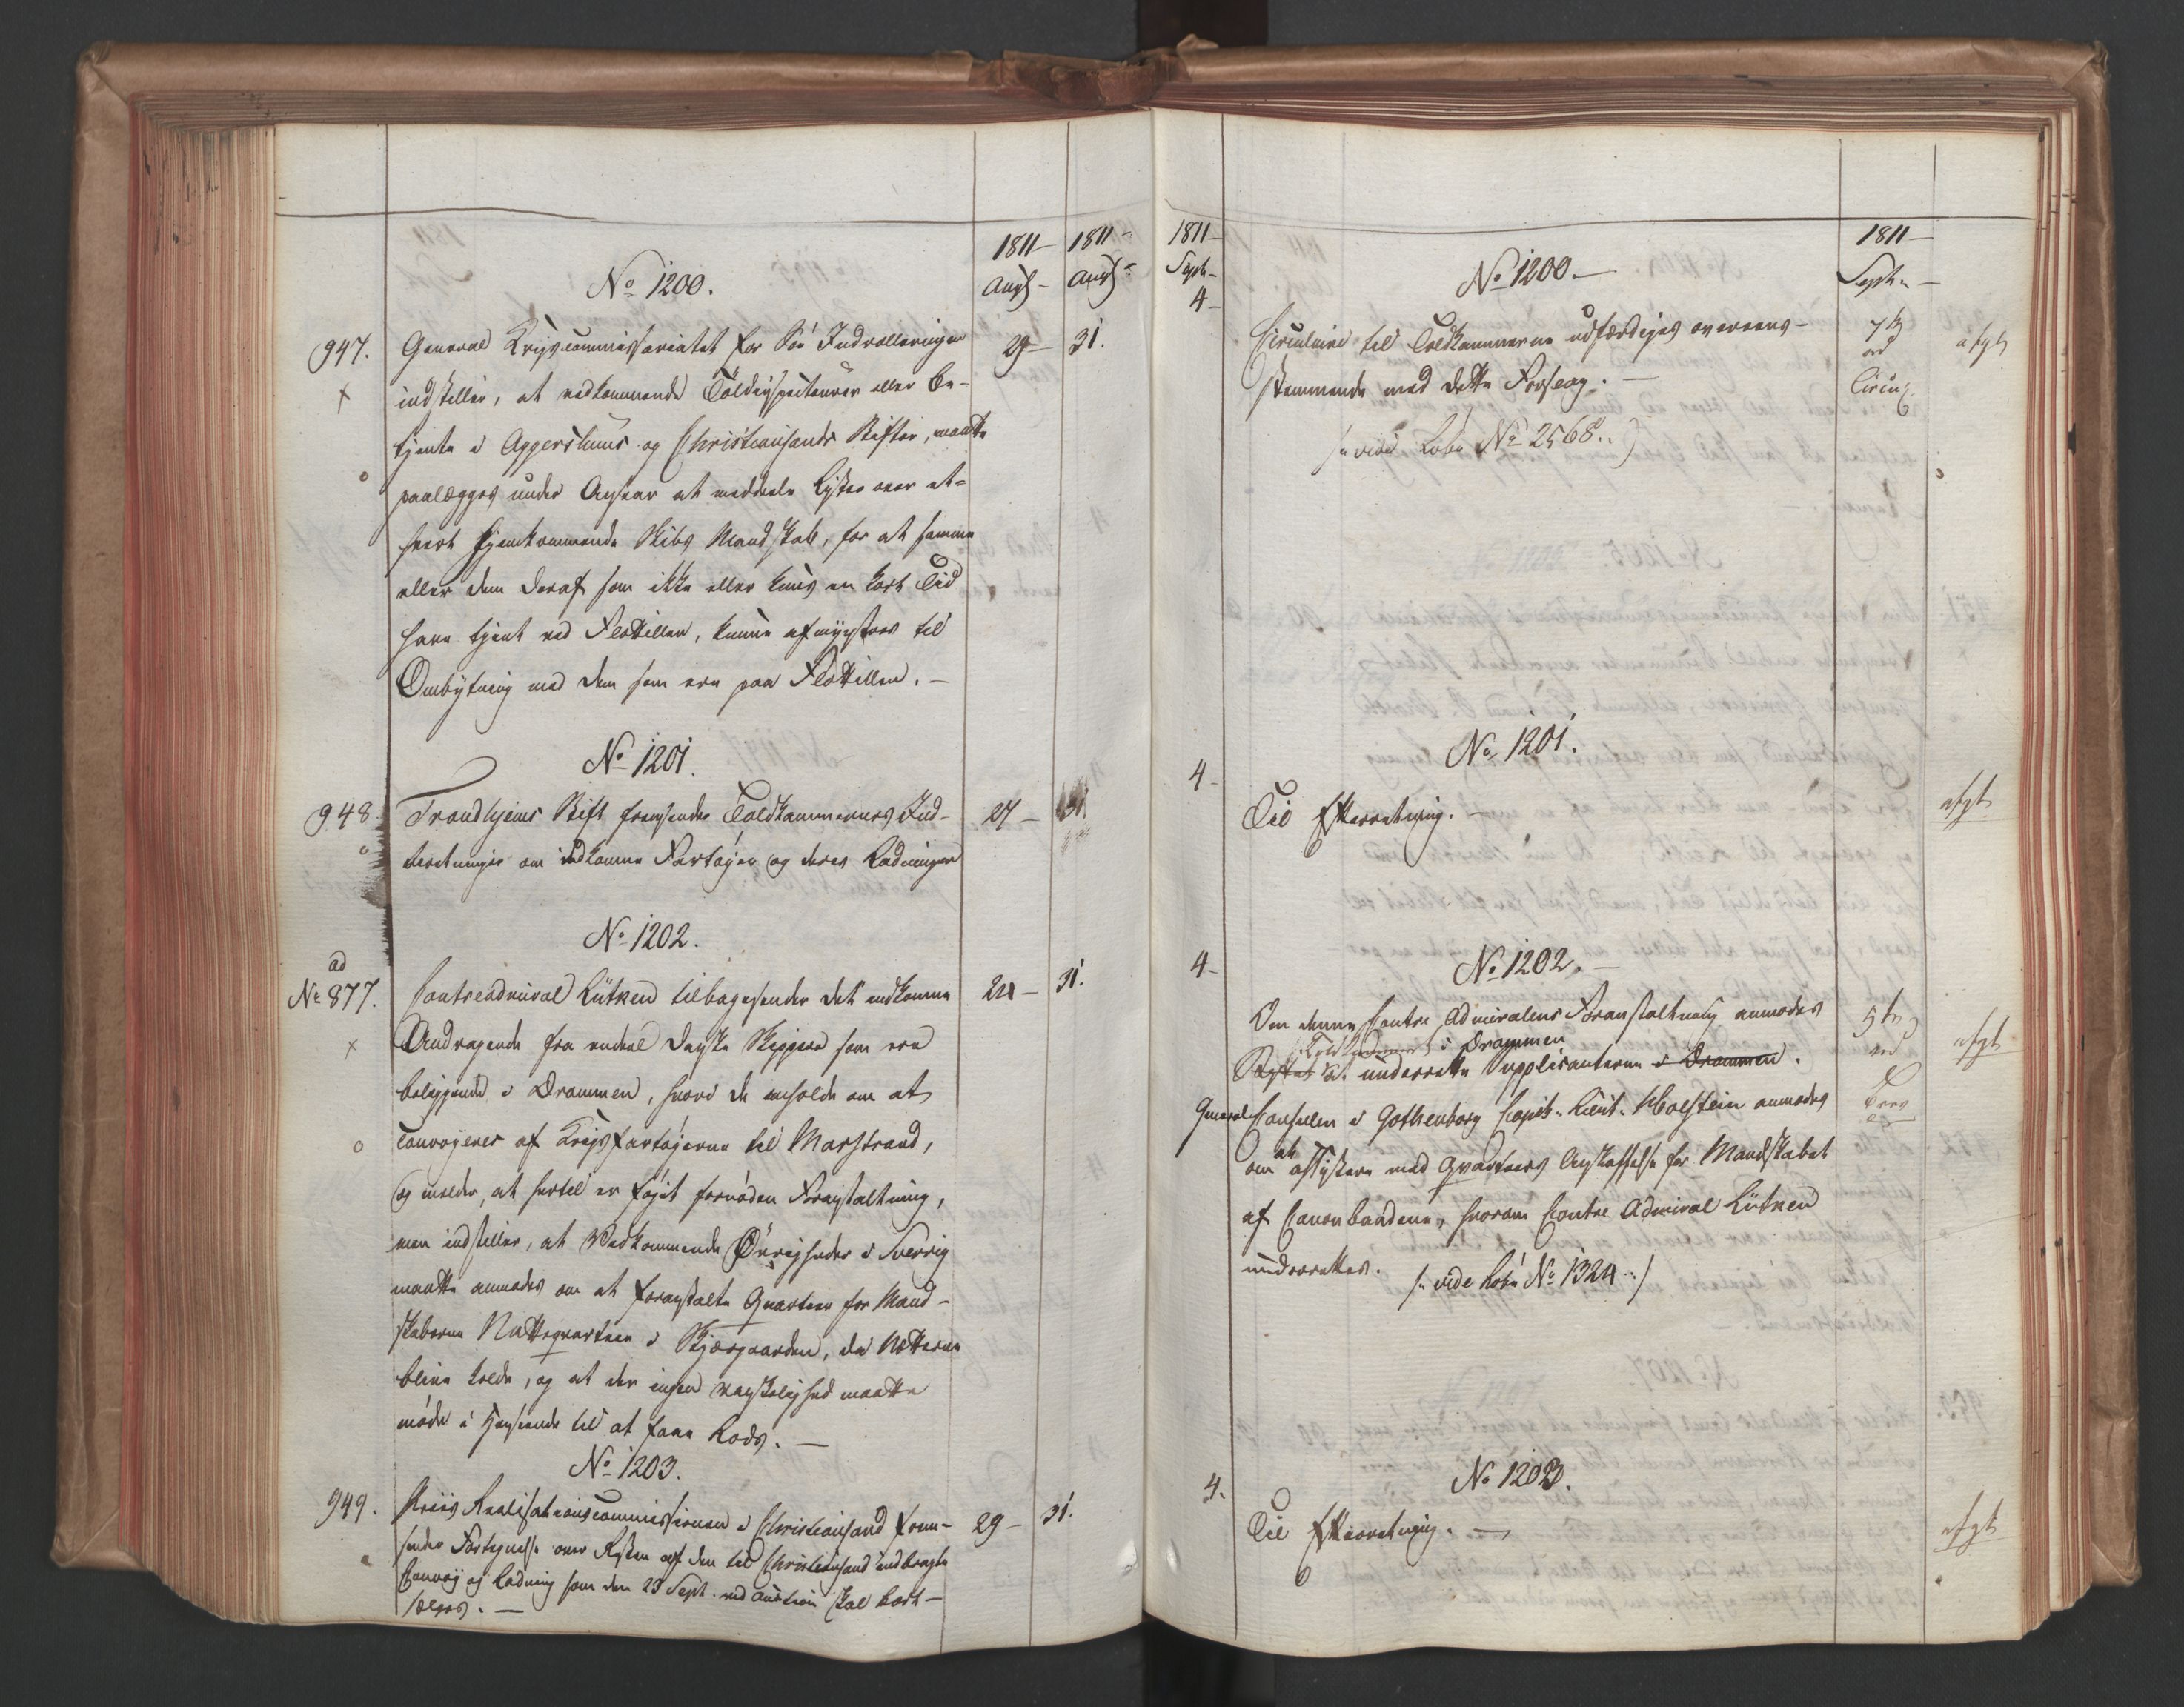 1811 — 1811 —
Augs — Augs —
No 1200.
947. General Krigscommissariatet for Söe Indrolleringen 29 — 31.
indstiller, at vedkommende Toldinspecteurer eller Be-
tjente i Aggershuus og Christiansands Stifter, maatte
paalægges under Ansvar at meddele Lister over et-
hvert hjemkommende Skibs Mandskab, for at samme
eller dem deraf som ikke eller kuns en kort Tid
have tjent ved Flottillen, kunne afmynstres til
Ombytning med dem som ere paa Flottillen. —
No 1201.
948. Trondhjems Stift fremsender Toldkammernes Ind- 27 — 31.
beretninger om indkomne Fartøjer og deres Ladninger
No 1202.
ad
No 877. Contreadmiral Lütken tilbagesender det indkomne 24 — 31.
Andragende fra endeel danske Skippere som ere
beliggende i Drammen, hvori de anholde om at
convoyeres af Krigsfartøjerne til Marstrand,
og melder, at hertil er føjet fornøden Foranstaltning,
men indstiller, at Vedkommende Øvrigheder i Sverrig
maatte anmodes om at foranstalte Qvarteer for Mand-
skaberne Natteqvarteer i Skjærgaarden, da Nætterne
blive kolde, og at der ingen vanskelighed maatte
møde i Henseende til at faae Lods. —
No 1203.
949. Priis Realisationscommissionen i Christiansand frem- 29 — 31.
sender Fortegnelse over Resten af den til Christiansand indbragte
Convoy og Ladning som den 23 Sept. ved Auction skal bort-
sælges. —
1811 — 1811 —
Septr — Septr —
No 1200. —
4 — Circulaire til Toldkammerne udfærdiges overeens- 7de afgt
stemmende med dette Forslag. — ved
Circul.
/: vide Løbe No 2568. :/
No 1201.
4 — Til Efterretning. — afgt
No 1202. —
4 — Om denne Contre Admiralens Foranstaltning anmodes 5te afgt
Toldkammeret i Drammen ved
at underrette Supplicanterne i Drammen. Brev
General Consulen i Gothenborg Capit. Lieut. Holstein anmodes
om at assistere med Qvarteers Anskaffelse for Mandskabet
af Canonbaadene, hvorom Contre Admiral Lütken
underrettes. /: vide Løbe No 1324 :/
No 1203.
4. Til Efterretning. — afgt